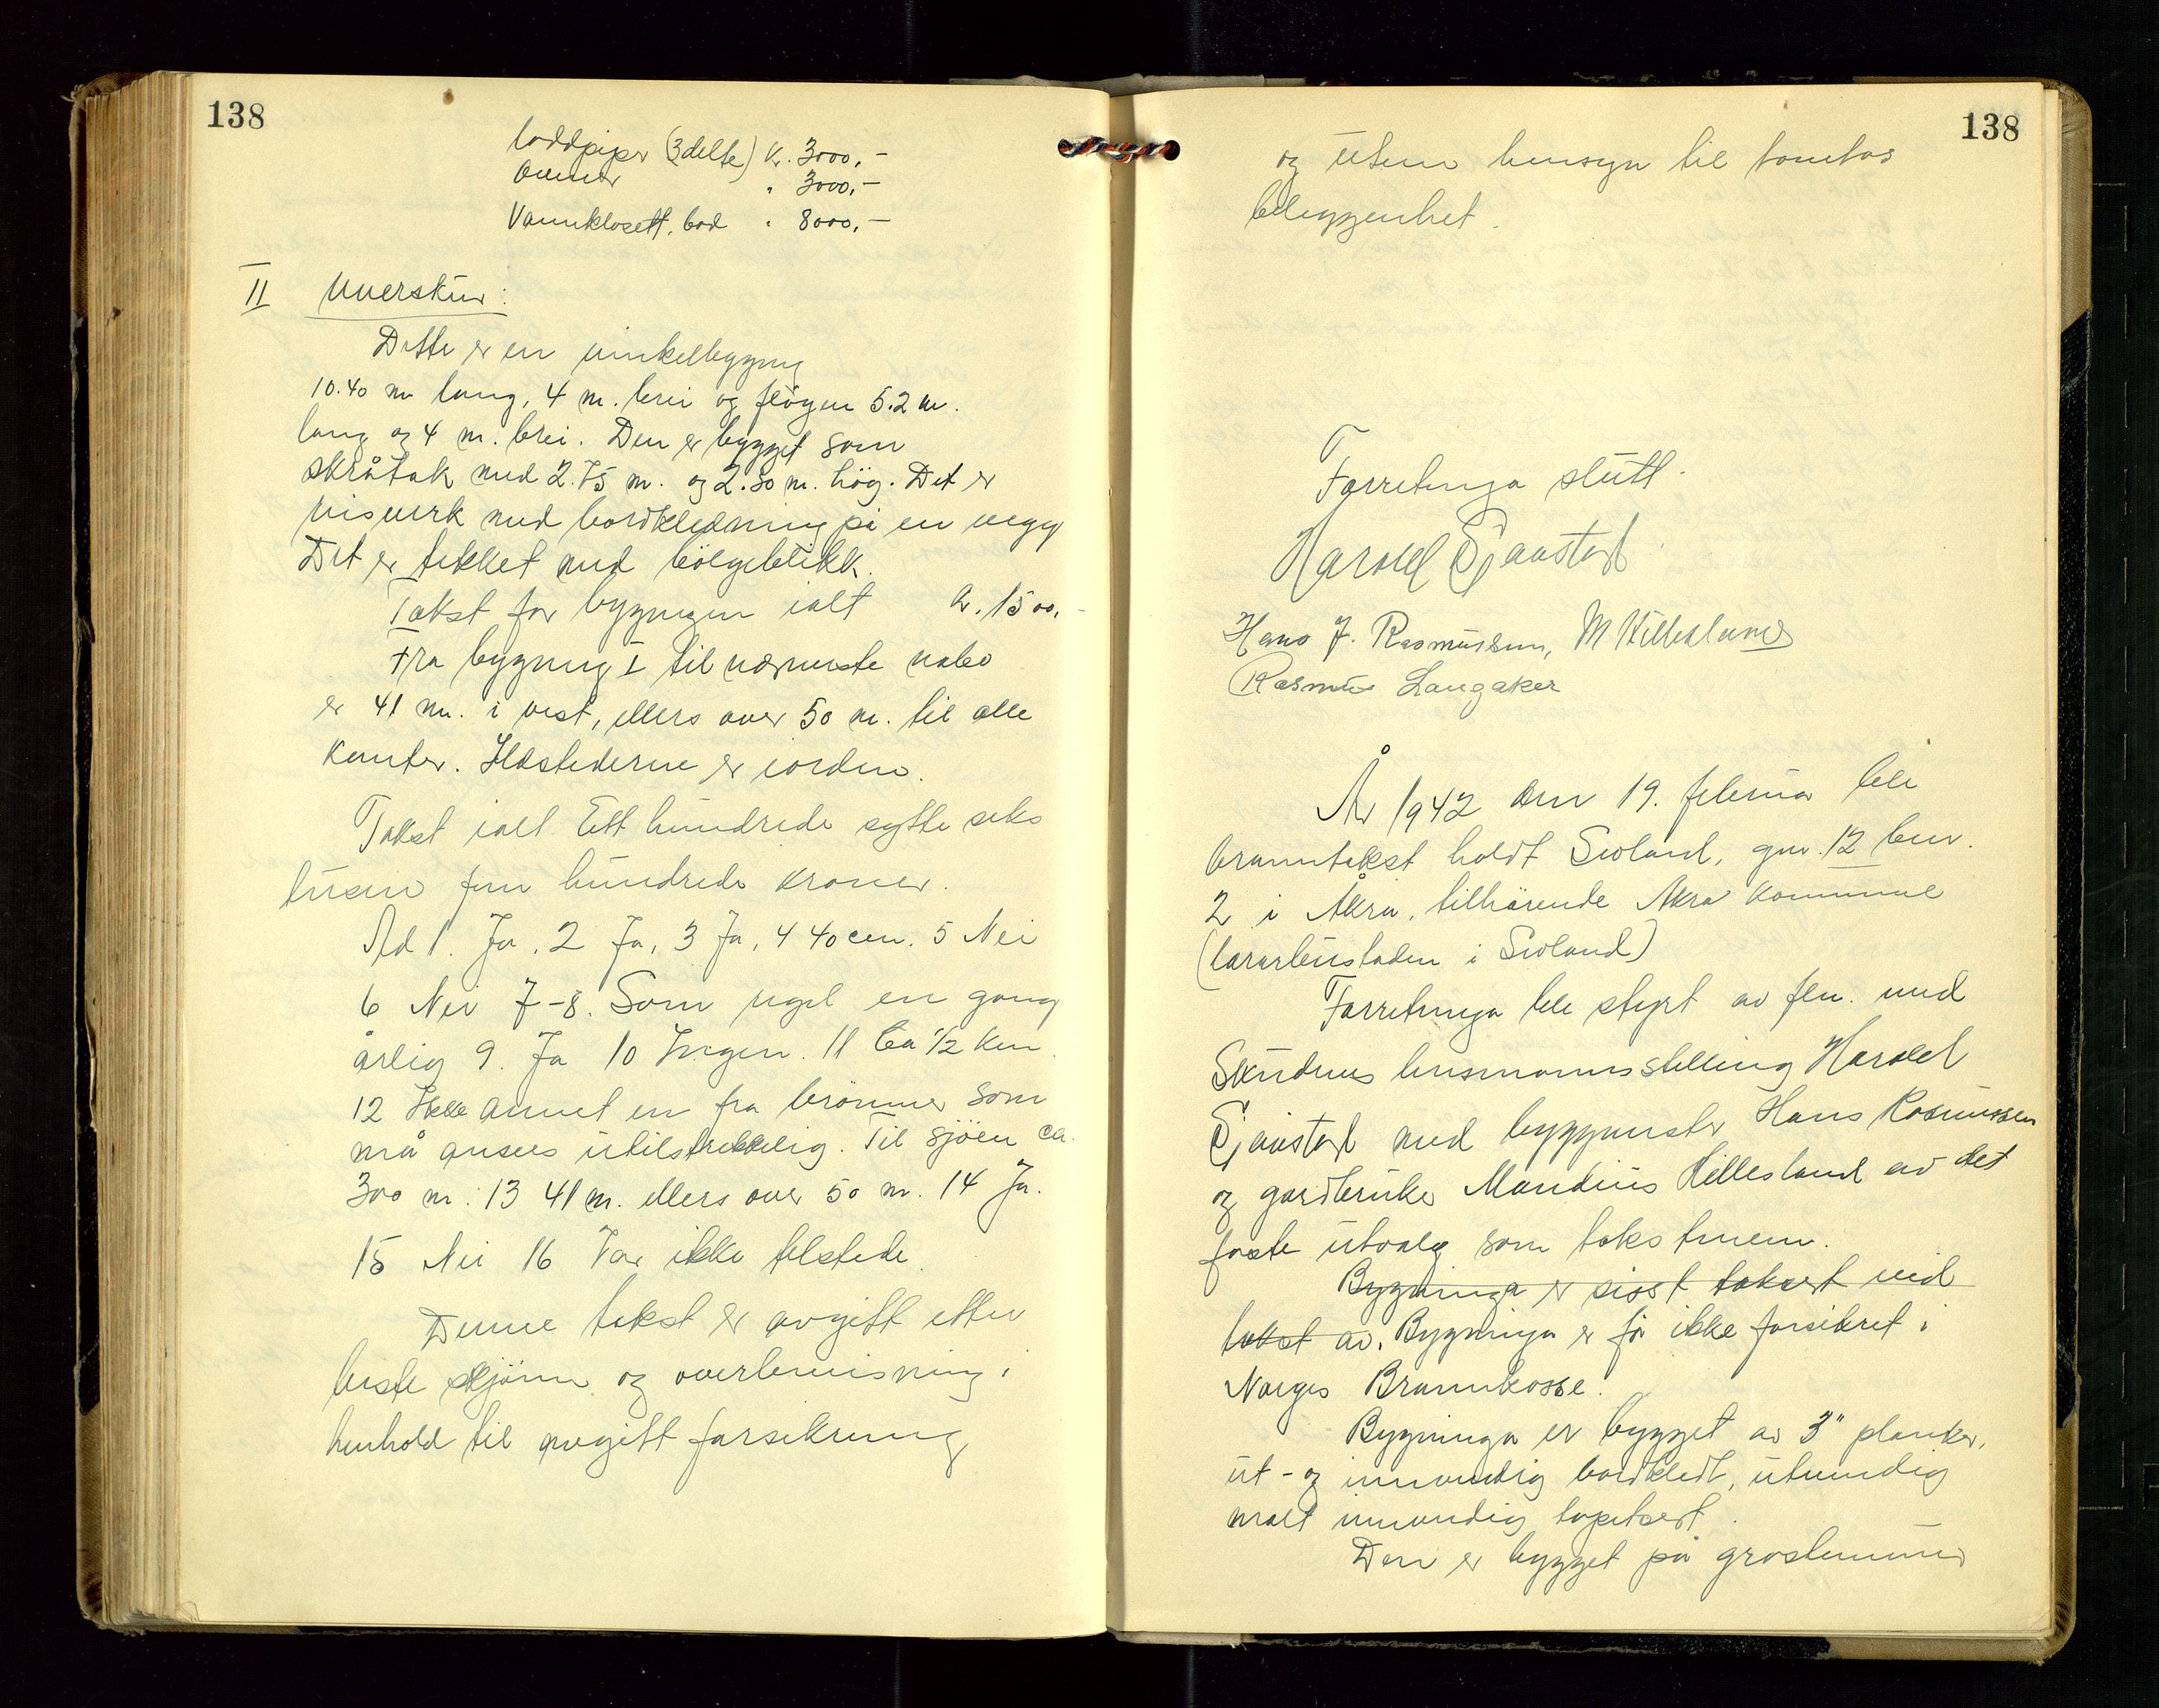 138
loddpiper (3 delte) Kr. 3000,-
Ovener " 3000,-
Vannklosett, bad " 8000,-
II Uverskur:
Dette er en vinkelbygning
10.40 m lang, 4 m. brei og fløyen 5.2 m.
lang og 4 m. brei. Den er bygget som
skråtak med 2.75 m. og 2.30 m. høg. Det er
bisverk med bordkledning på en vegg
Det er tekket med bølgeblikk.
Takst for bygningen ialt kr. 1500,-
Fra bygning I til nærmeste nabo
er 41 m. i vest, ellers over 50 m. til alle
kanter. Ildstederne er iorden.
Takst ialt Ett hundrede sytte seks
tusen fem hundrede kroner.
Ad 1. Ja, 2 Ja, 3 Ja, 4 40 cm. 5 Nei
6 Nei 7-8. Som regel en gang
årlig 9. Ja 10 Ingen. 11 Ca 1/2 km
12 Ikke annet en fra brønner som
må ansees utilstrekkelig. Til sjøen ca.
300 m. 13 41 m. ellers over 50 m. 14 Ja.
15 Nei 16 Var ikke tilstede.
Denne takst er avgitt etter
beste skjønn og overbevisning i
henhold til avgitt forsikring
138
og uten hensyn til tomtas
beliggenhet.
Forretninga slutt.
Harald Sjaastad
Hans J. Rasmussen, M Hillesland
Rasmus Langaker
År 1942 den 19. februar ble
branntakst holdt Sæland, gnr. 12 bnr.
2 i Åkra, tilhørende Åkra kommune
(lærarbustaden i Sæland)
Forretninga ble styrt av fln. ved
Skudenes lensmannsstilling Harald
Sjaastad med byggmester Hans Rasmussen
og gardbruker Mandius Hillesland av det
faste utvalg som takstmenn.
Bygninga er sisst taksert ved
takst av. Bygninga er før ikke forsikret i
Norges Brannkasse.
Bygninga er bygget av 3" planker,
ut- og innvendig bordkledt, utvendig
malt innvendig tapetsert.
Den er bygget på gråsteinmur